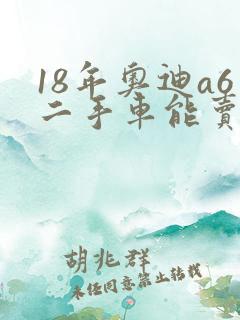 18年奥迪a6
二手车能卖
胡兆群
未经同意禁止转载